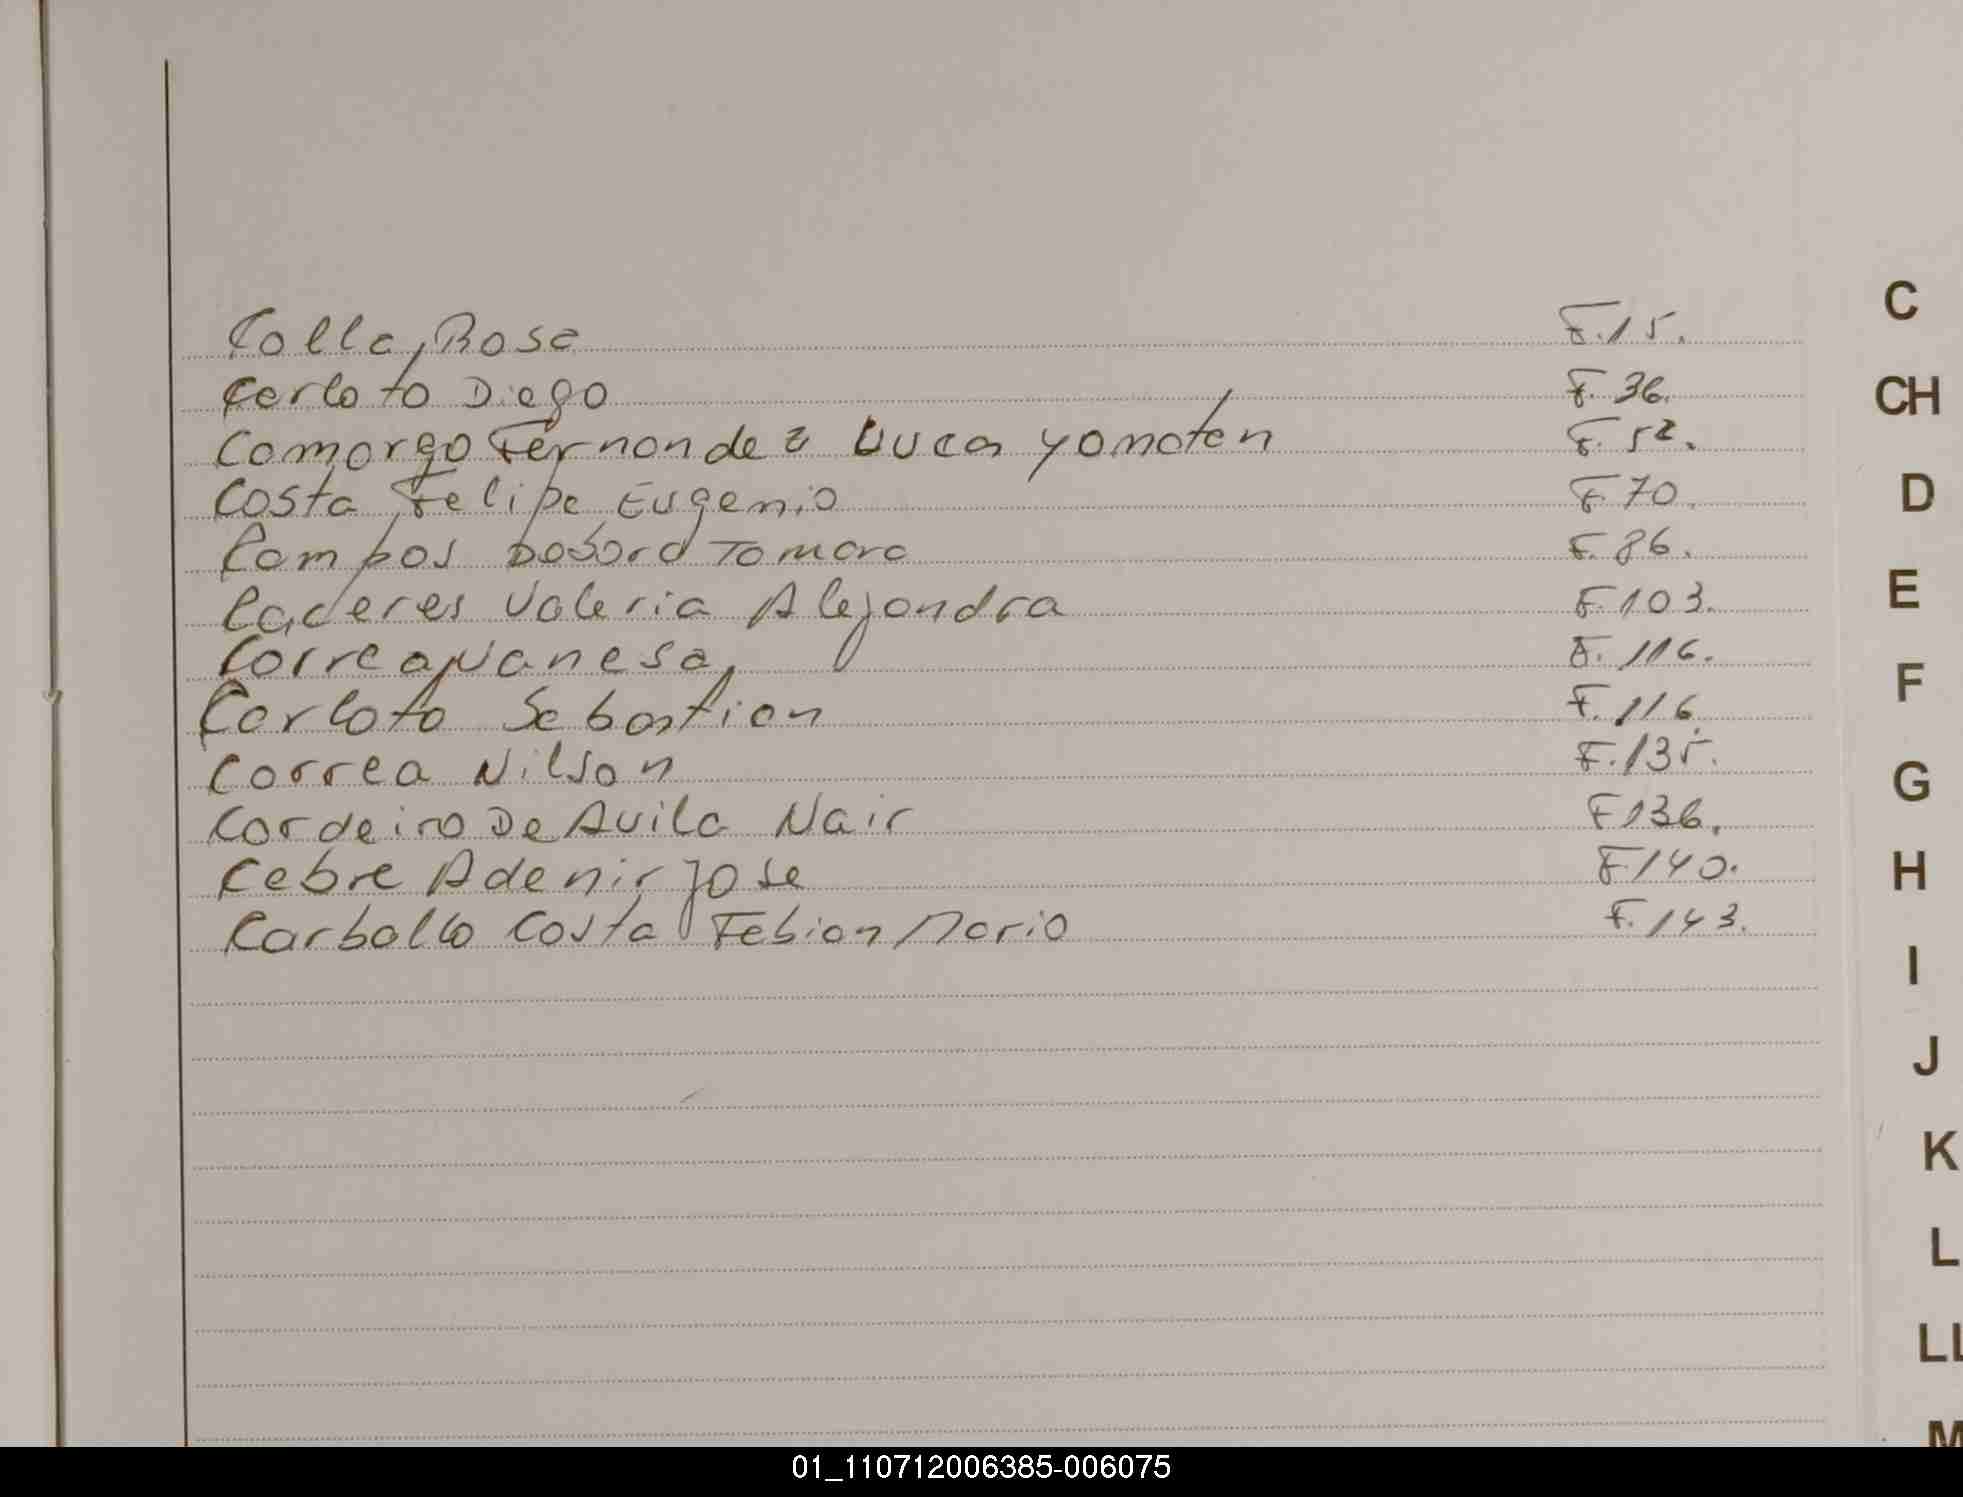 Colla, Rosa F.15.
Carloto Diego F.36.
Camargo Fernandez Luca Yamaten F.52.
Costa Felipe Eugenio F70.
Campos Tamara F.86.
Caceres Valeria Alejandra F.103.
Correa, Vanesa, F.116.
Carloto Sebastian F.116.
Correa Nilson F.135.
Cordeiro De Avila Nair F136.
Cebre Adenir Jose F140.
Carballo Costa Fabian Mario F.143.
C
CH
D
E
F
G
H
I
J
K
L
LL
M
01_110712006385-006075